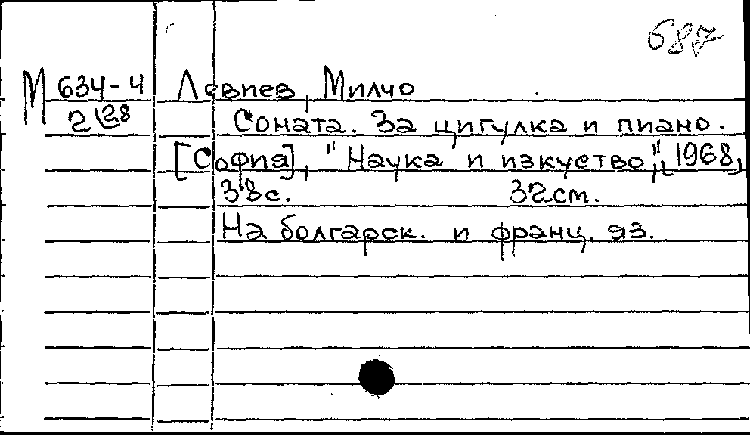 687
М 634-4 Левиев, Милчо
2/28 Соната. За цигулка и пиано.
[София], "Наука и изкуство", [1968]
38с. 32см.
На болгарск. и франц. яз.